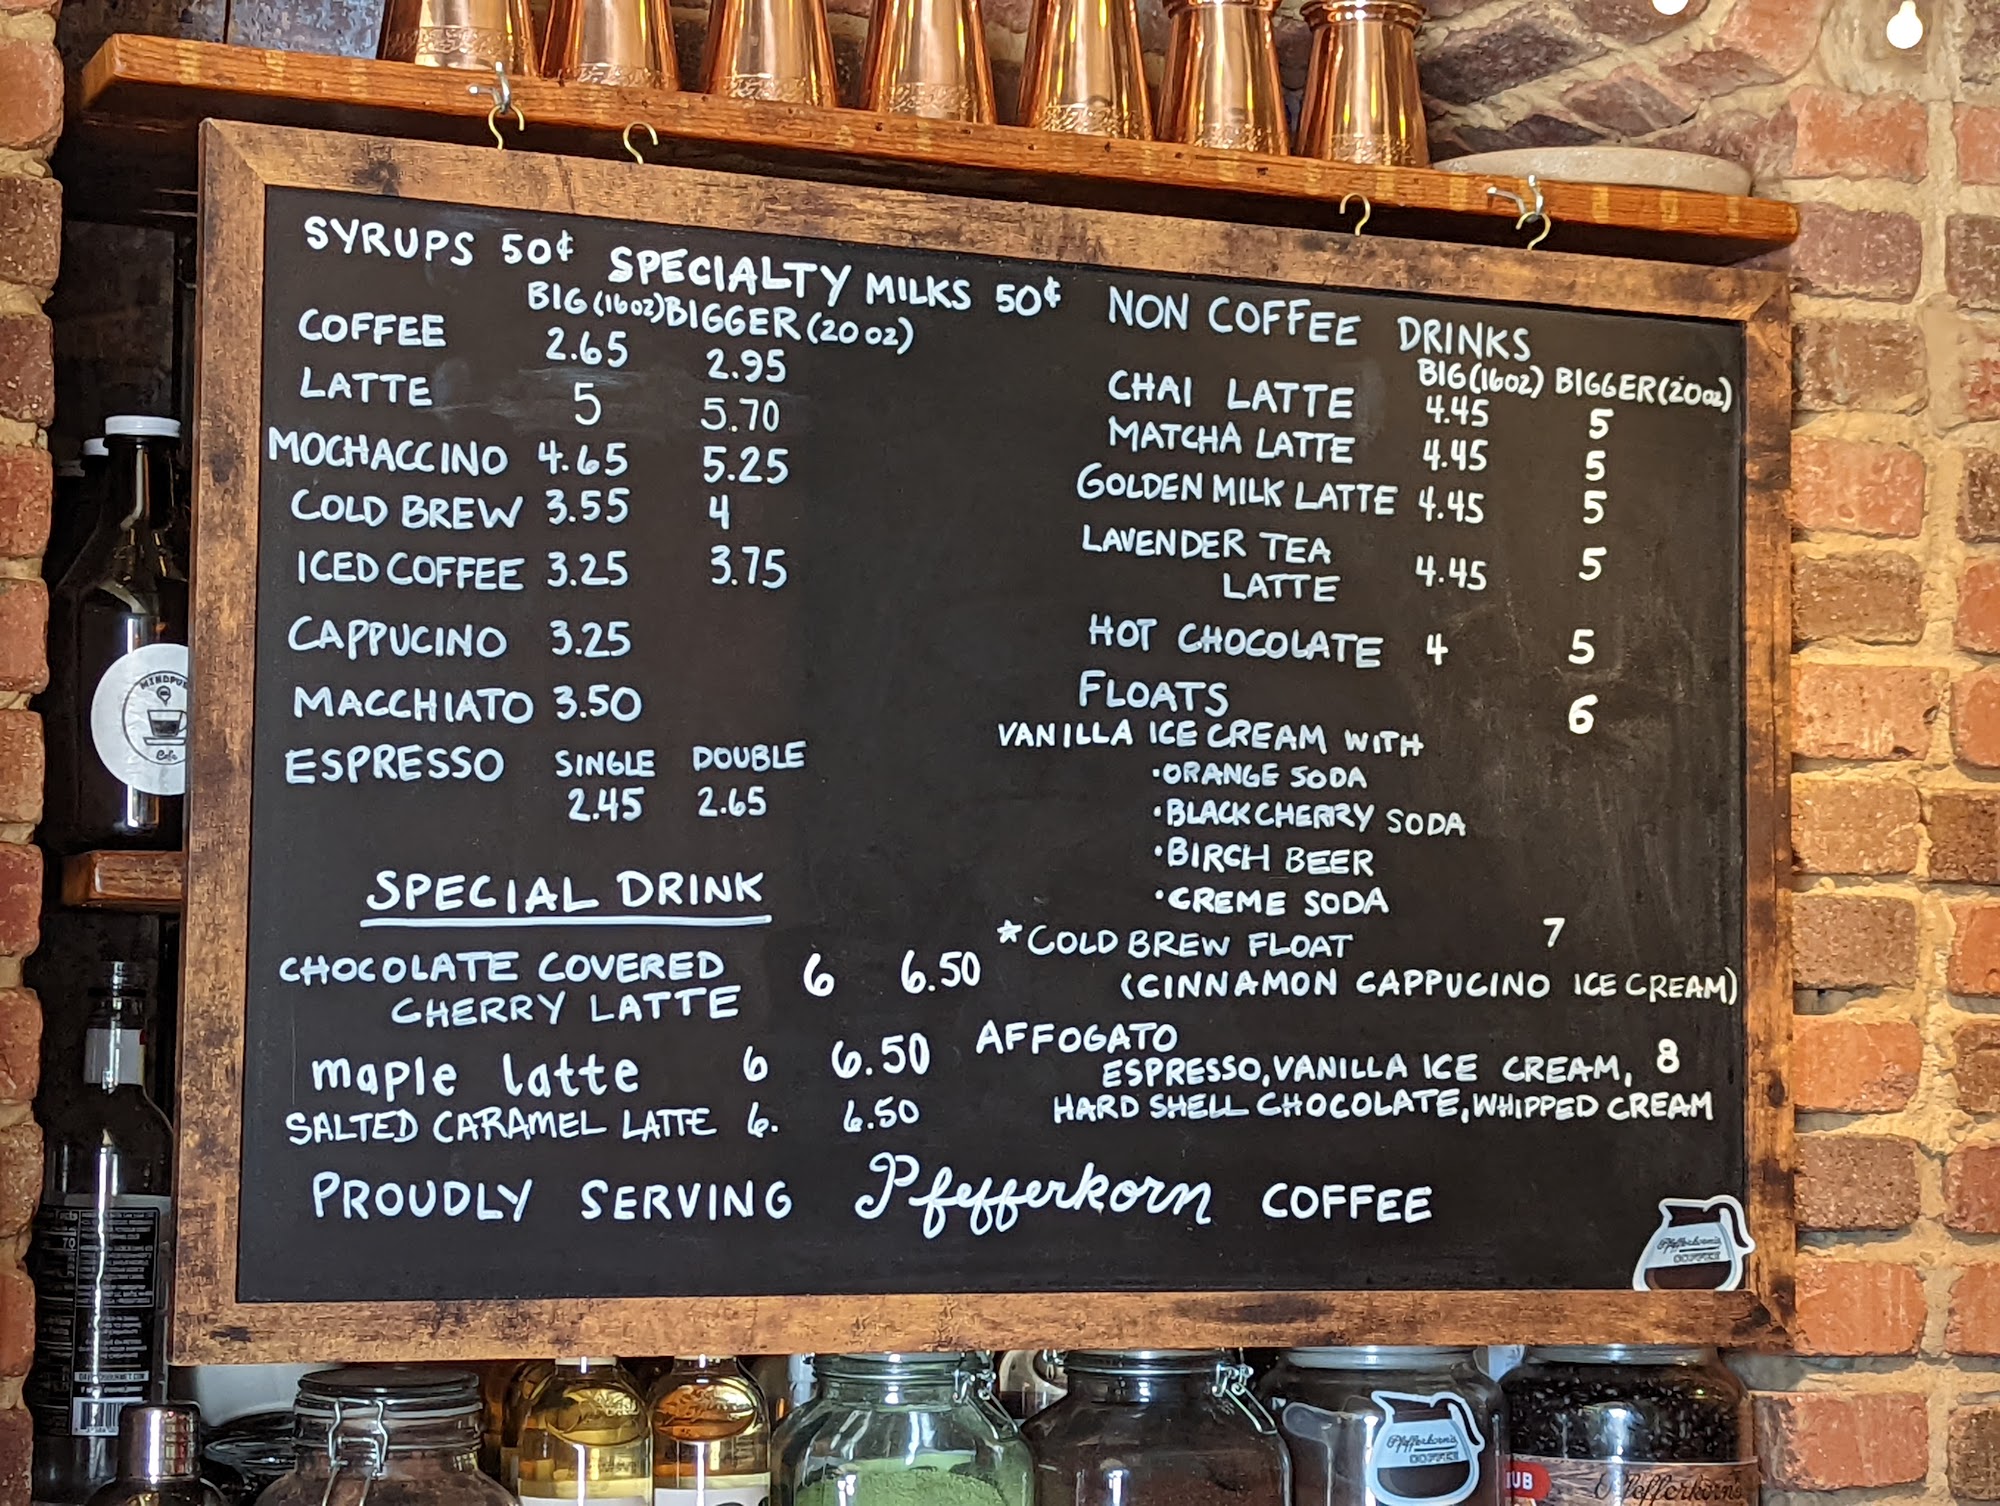 SYRUPS 50¢ SPECIALTY MILKS 50¢
BIG (16oz) BIGGER (20 oz)
COFFEE 2.65 2.95
LATTE 5 5.70
MOCHACCINO 4.65 5.25
COLD BREW 3.55 4
ICED COFFEE 3.25 3.75
CAPPUCINO 3.25
MACCHIATO 3.50
ESPRESSO SINGLE DOUBLE
2.45 2.65
SPECIAL DRINK
CHOCOLATE COVERED
CHERRY LATTE 6 6.50
maple latte 6 6.50
SALTED CARAMEL LATTE 6. 6.50
NON COFFEE DRINKS
BIG (16oz) BIGGER (20oz)
CHAI LATTE 4.45 5
MATCHA LATTE 4.45 5
GOLDEN MILK LATTE 4.45 5
LAVENDER TEA
LATTE 4.45 5
HOT CHOCOLATE 4 5
FLOATS 6
VANILLA ICE CREAM WITH
•ORANGE SODA
•BLACK CHERRY SODA
•BIRCH BEER
•CREME SODA
*COLD BREW FLOAT 7
(CINNAMON CAPPUCINO ICE CREAM)
AFFOGATO
ESPRESSO, VANILLA ICE CREAM, 8
HARD SHELL CHOCOLATE, WHIPPED CREAM
PROUDLY SERVING Pfefferkorn COFFEE
Pfefferkorn's
COFFEE
Cafe
Pfefferkorn's
COFFEE